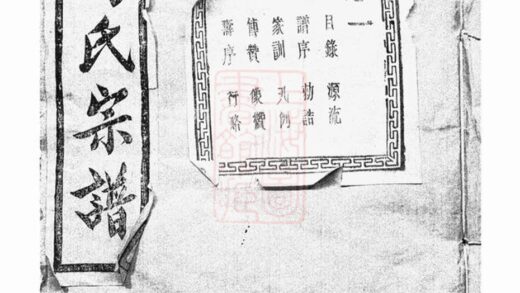 目錄 源流
譜序 勅誥
家訓 凡例
傳贊 像贊
壽序 行略
氏宗譜